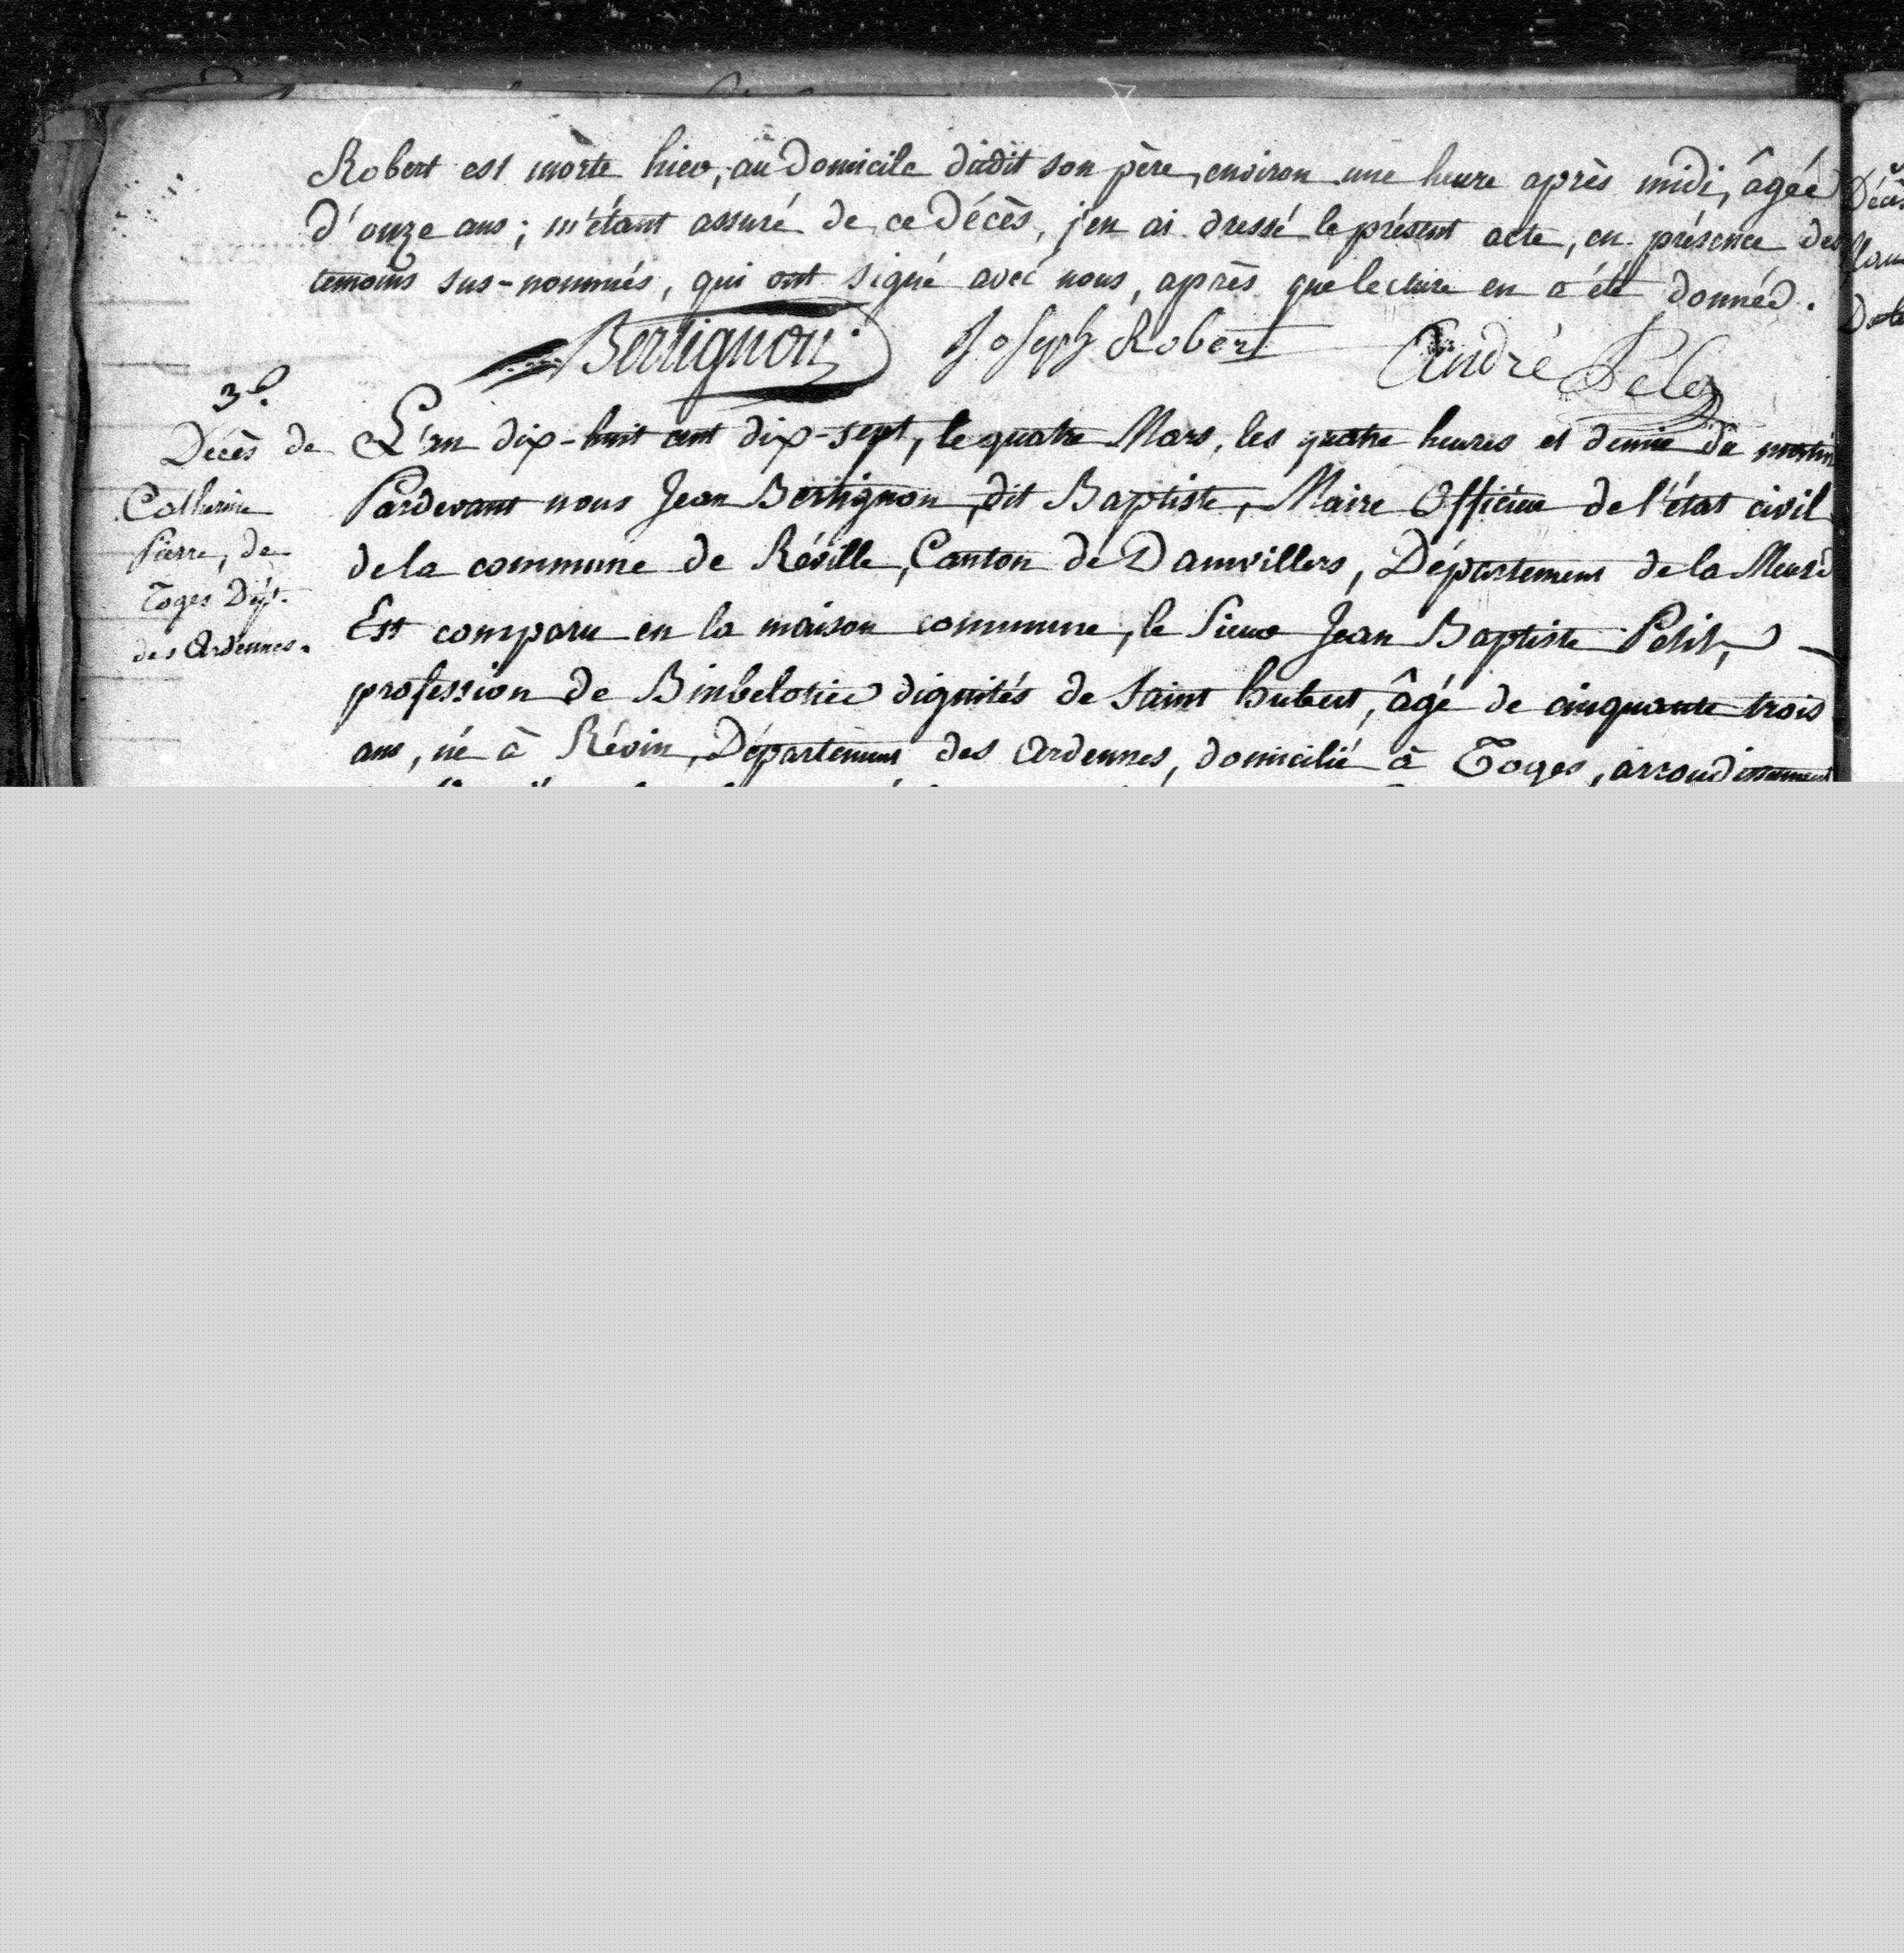 Robert est morte hier, au domicile dudit son père, environ une heure après midi, âgée
d'onze ans; m'étant assuré de ce décès, j'en ai dressé le présent acte, en présence des
temoins sus-nommés, qui ont signé avec nous, après que lecture en a été donnée.
Bertignon Joseph Robert André
3e.
Décès de
Catherine
Pierre, de
Toges Dépt.
des Ardennes.
L'an dix-huit cent dix-sept, le quatre Mars, les quatre heures et demie du matin
Pardevant nous Jean Bertignon, dit Baptiste, Maire Officier de l'état civil
de la commune de Réville, Canton de Damvillers, Département de la Meuse
Est comparu en la maison commune, le Sieur Jean Baptiste Petit,
profession de Binbelotier dignités de Saint hubert, âgé de cinquante trois
ans, né à Révin, Département des Ardennes, domicilié à Toges, arrondissement